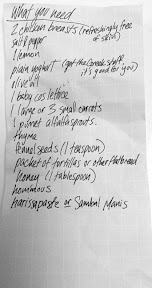 What you need
2 chicken breasts (refreshingly free of skin)
salt & pepper
1 lemon
plain yoghurt (get the Greek stuff, it's good for you)
olive oil
1 baby cos lettuce
1 large or 3 small carrots
1 punnet alfalfa sprouts.
thyme
fennel seeds (1 teaspoon)
packet of tortillas or other flatbread
honey (1 tablespoon)
hommous
harissa paste or Sambal Manis